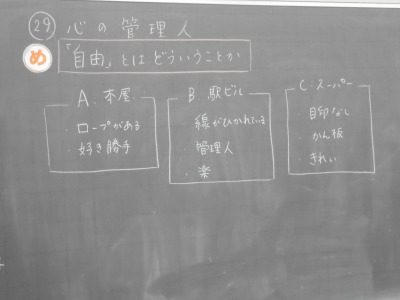 ㉙ 心の管理人
め 「自由」とはどういうことか
A. 本屋
・ロープがある
・好き勝手
B. 駅ビル
・線がひかれている
・管理人
・楽
C. スーパー
・目印なし
・かん板
・きれい